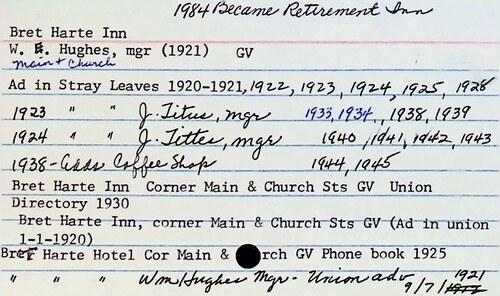 1984 Became Retirement Inn
Bret Harte Inn
W. E. Hughes, mgr (1921) GV
Main & Church
Ad in Stray Leaves 1920-1921, 1922, 1923, 1924, 1925, 1928
1923 " " J. Titus, mgr 1933, 1934, 1938, 1939
1924 " " J. Tittes, mgr 1940, 1941, 1942, 1943
1938 - Adds Coffee Shop 1944, 1945
Bret Harte Inn Corner Main & Church Sts GV Union
Directory 1930
Bret Harte Inn, corner Main & Church Sts GV (Ad in union
1-1-1920)
Bret Harte Hotel Cor Main & rch GV Phone book 1925
" " " Wm Hughes Mgr - Union adv 1921
9/7/1912